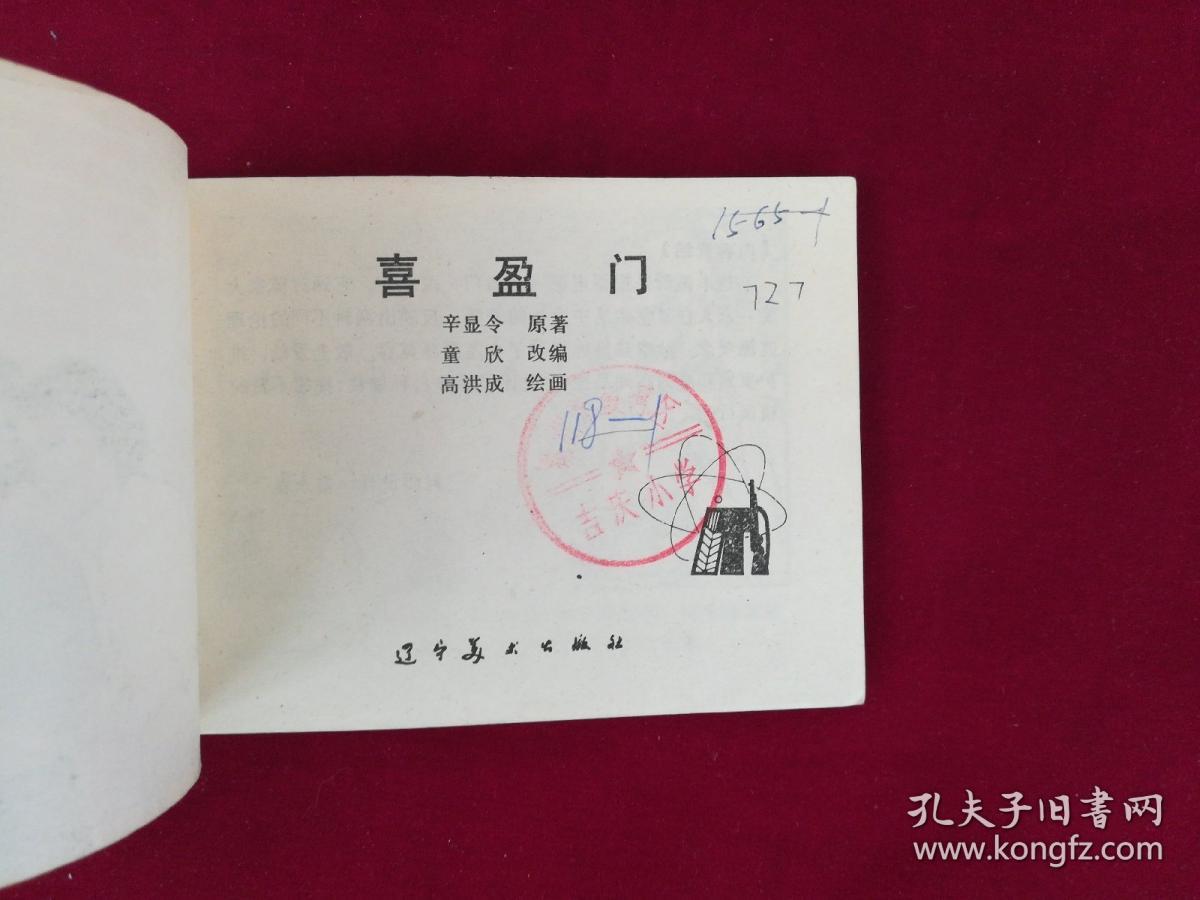 1565-1
喜盈门
727
辛显令 原著
童欣 改编
高洪成 绘画
118-1
吉庆小学
辽宁美术出版社
孔夫子旧书网
www.kongfz.com